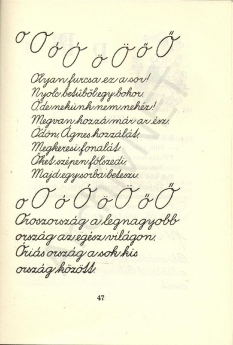 o O ó Ó ö Ö ő Ő
Olyan furcsa ez a sor!
Nyolc betűből egy bokor.
Ó de nekünk nem nehéz!
Megvan hozzá már az ész.
Ödön, Ágnes hozzálát,
Megkeresi fonalát.
Őket szépen fölszedi,
Majd egy sorba beteszi.
o O ó Ó ö Ö ő Ő
Oroszország a legnagyobb
ország az egész világon.
Óriás ország a sok kis
ország között.
47